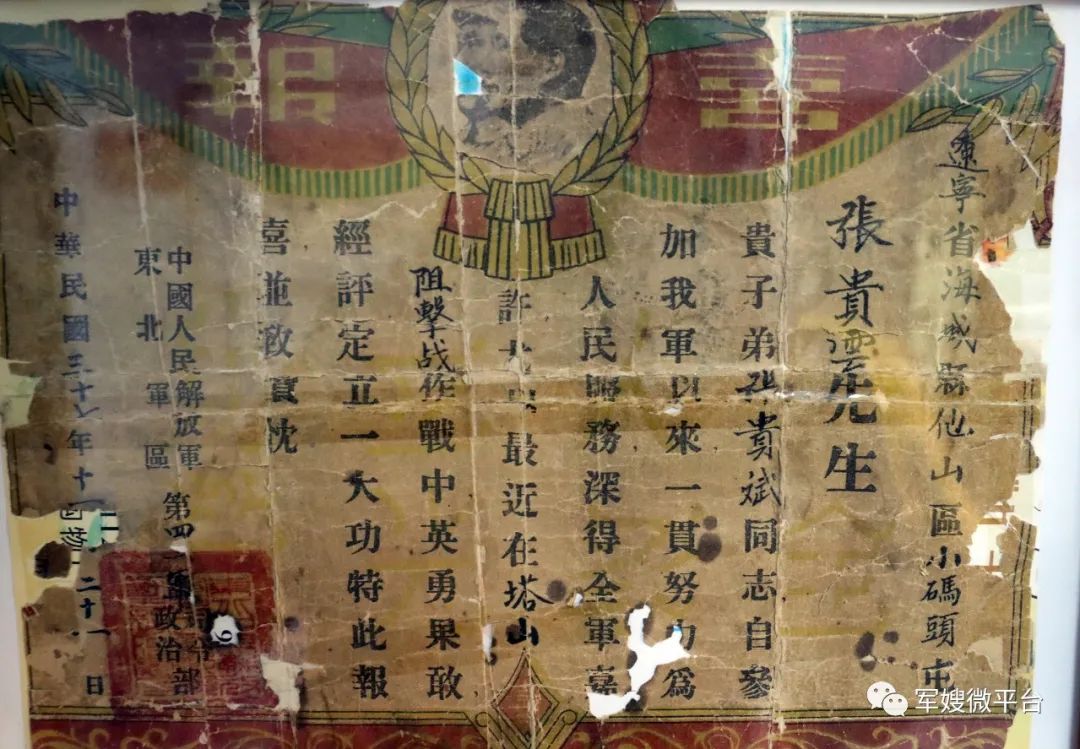 喜報
遼寧省海城縣他山區小碼頭屯
張貴先生
貴子弟張貴斌同志自參
加我軍以來一貫努力為
人民服務深得全軍嘉
許尤以最近在塔山
阻擊战作戰中英勇果敢
經評定立一大功特此報
喜並致賀忱
中國人民解放軍第四軍政治部
東北軍區
中華民國三十七年十二十一日
军嫂微平台